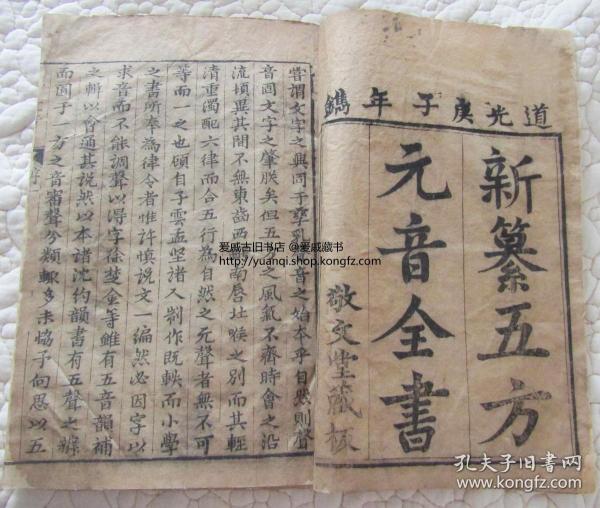 道光庚子年鐫
新纂五方
元音全書
敬文堂藏板
嘗謂文字之興同于孳乳
音之始本乎自然則聲
音固文字之肇朕矣但五
之風氣不齊時會之沿
流頃異其間不無東
西
南唇
喉之別而其輕
清重濁配六律而合五行為自然之元聲者無不可
等而一之也頋自子雲孟坚諸人
作既軼而小學
之書所奉為律令者惟許慎説文一編然必因字以
求音而不能調聲以得字徐
金等雖有五音韻補
之
以會通其説然以本諸沈約韻書有五聲之
而囿于一方之音審聲分
多未恊予向思以五
序
爱戚古旧书店 @爱戚藏书
http://yuanqi.shop.kongfz.com/
孔夫子旧书网
www.kongfz.com